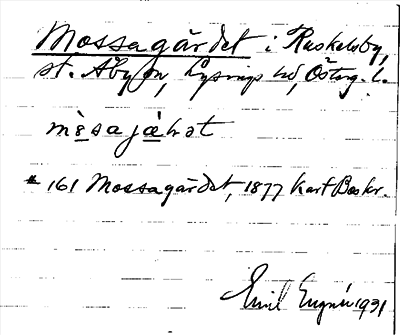 Mossagärdet i Ruskelsby,
st. Åby sn, Lysings hd, Östrg. l.
mɛ̀sajạ̈hɔt
161 Mossagärdet, 1877 Kart Beskr.
Emil 1931